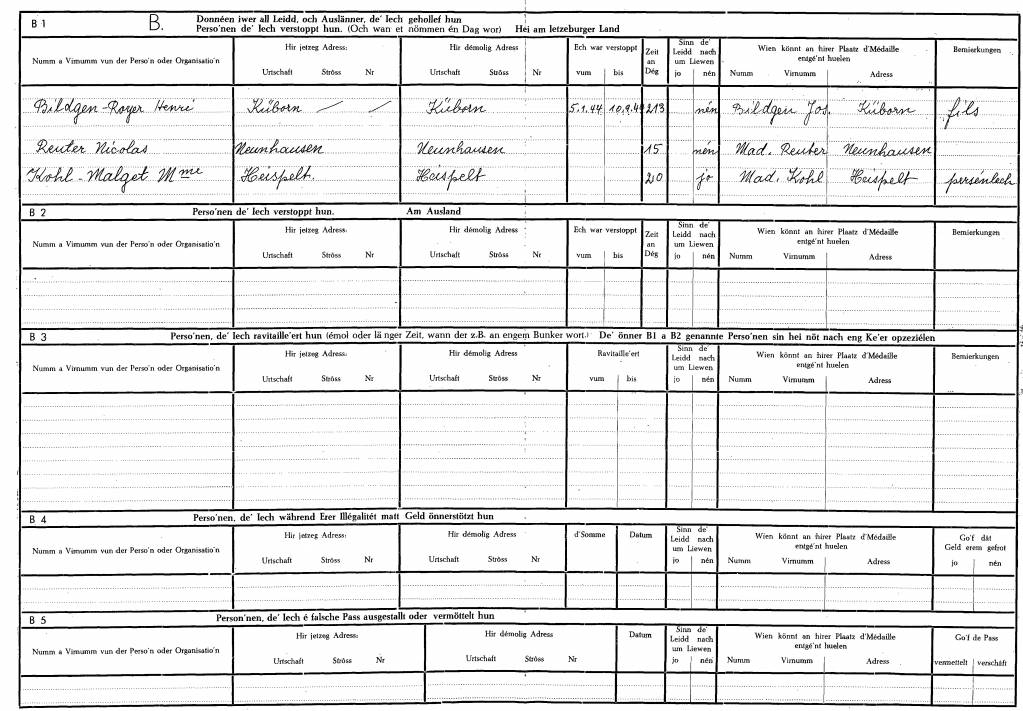 B 1 B. Donnéen iwer all Leidd, och Auslänner, de' Iech gehollef hun
Perso'nen de' Iech verstoppt hun. (Och wan et nömmen én Dag wor) Hei am letzeburger Land
Numm a Virnumm vun der Perso'n oder Organisatio'n Hir jetzeg Adress: Hir démolig Adress Ech war verstoppt Zeit an Dég Sinn de' Leidd nach um Liewen Wien könnt an hirer Plaatz d'Médaille entgé'nt huelen Bemierkungen
Urtschaft Ströss Nr Urtschaft Ströss Nr vum bis jo nén Numm Virnumm Adress
Bildgen-Royer Henri Küborn / / Küborn 5.1.44 10.9.44 213 nén Bildgen Jos. Küborn fils
Reuter Nicolas Neunhausen Neunhausen 15 nén Mad. Reuter Neunhausen
Kohl-Malget Mme Heispelt. Heispelt 20 jo Mad. Kohl Heispelt persénlech
B 2 Perso'nen de' Iech verstoppt hun. Am Ausland
Numm a Virnumm vun der Perso'n oder Organisatio'n Hir jetzeg Adress: Hir démolig Adress Ech war verstoppt Zeit an Dég Sinn de' Leidd nach um Liewen Wien könnt an hirer Plaatz d'Médaille entgé'nt huelen Bemierkungen
Urtschaft Ströss Nr Urtschaft Ströss Nr vum bis jo nén Numm Virnumm Adress
B 3 Perso'nen, de' Iech ravitaille'ert hun (émol oder länger Zeit, wann der z.B. an engem Bunker wort.) De' önner B1 a B2 genannte Perso'nen sin hei nöt nach eng Ke'er opzeziélen
Numm a Virnumm vun der Perso'n oder Organisatio'n Hir jetzeg Adress: Hir démolig Adress Ravitaille'ert Sinn de' Leidd nach um Liewen Wien könnt an hirer Plaatz d'Médaille entgé'nt huelen Bemierkungen
Urtschaft Ströss Nr Urtschaft Ströss Nr vum bis jo nén Numm Virnumm Adress
B 4 Perso'nen, de' Iech während Erer Illégalitét matt Geld önnerstötzt hun
Numm a Virnumm vun der Perso'n oder Organisatio'n Hir jetzeg Adress: Hir démolig Adress d'Somme Datum Sinn de' Leidd nach um Liewen Wien könnt an hirer Plaatz d'Médaille entgé'nt huelen Go'f dât Geld erem gefrot
Urtschaft Ströss Nr Urtschaft Ströss Nr jo nén Numm Virnumm Adress jo nén
B 5 Person'nen, de' Iech é falsche Pass ausgestallt oder vermöttelt hun
Numm a Virnumm vun der Perso'n oder Organisatio'n Hir jetzeg Adress: Hir démolig Adress Datum Sinn de' Leidd nach um Liewen Wien könnt an hirer Plaatz d'Médaille entgé'nt huelen Go'f de Pass
Urtschaft Ströss Nr Urtschaft Ströss Nr jo nén Numm Virnumm Adress vermettelt verschâft